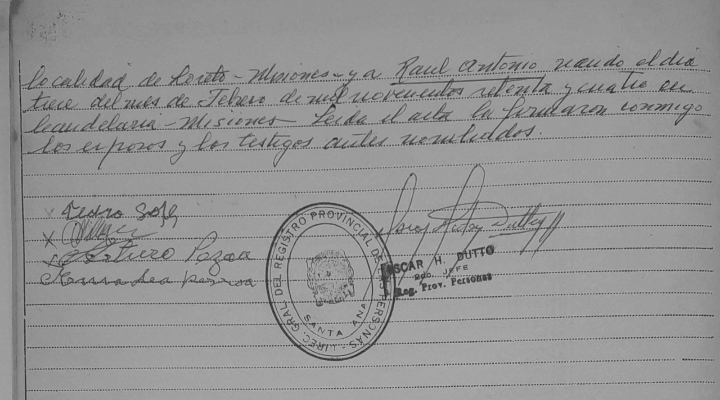 localidad de Loreto - Misiones - y a Raul Antonio, nacido el dia
trece del mes de Febrero de mil novecientos setenta y cuatro en
Candelaria - Misiones. Leida el acta la firmaron conmigo
los esposos y los testigos antes nombrados.
x Pedro Sosa
x
x Arturo
DIREC. GRAL. DEL REGISTRO PROVINCIAL DE PERSONAS
SANTA ANA
OSCAR H. DUTTO
JEFE
Reg. Prov. Personas